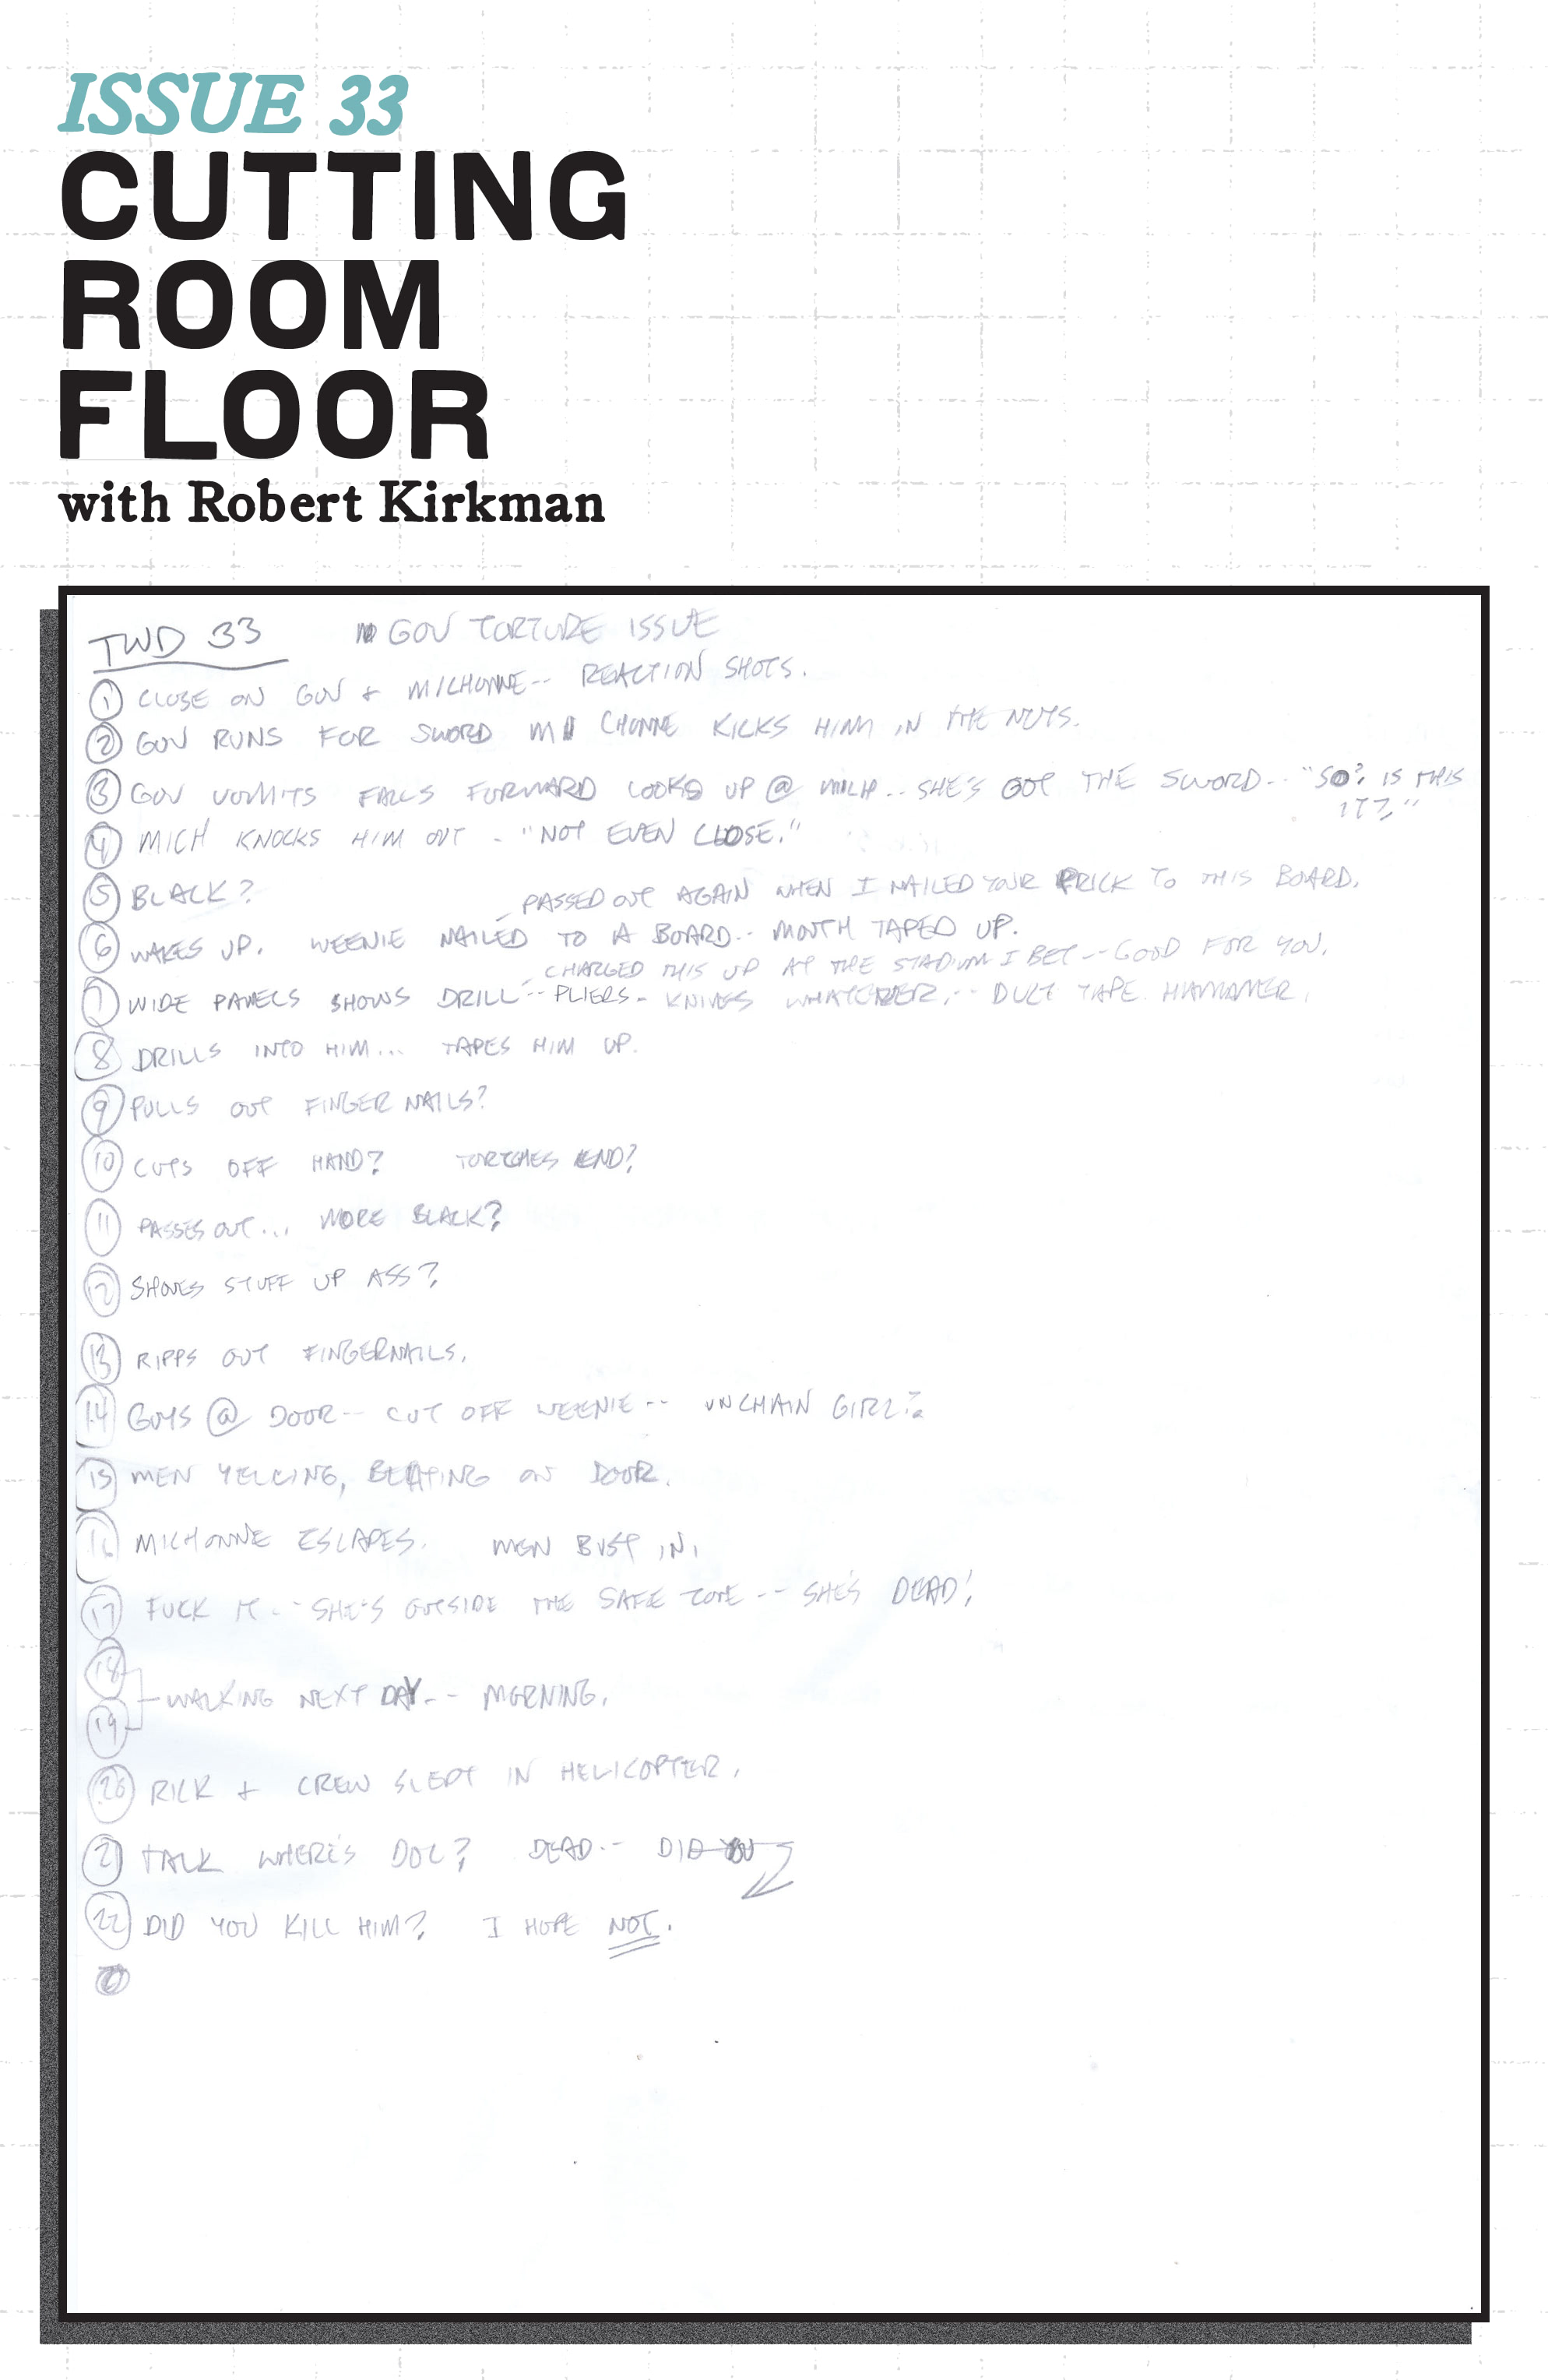 ISSUE 33
CUTTING
ROOM
FLOOR
with Robert Kirkman
TWD 33 GOV TORTURE ISSUE
1 CLOSE ON GOV + MICHONNE-- REACTION SHOTS.
2 GOV RUNS FOR SWORD MICHONNE KICKS HIM IN THE NUTS.
3 GOV VOMITS FALLS FORWARD LOOKS UP @ MICH.. SHE'S GOT THE SWORD-- "SO? IS THIS
IT?"
4 MICH KNOCKS HIM OUT - "NOT EVEN CLOSE."
5 BLACK?
PASSED OUT AGAIN WHEN I NAILED YOUR PRICK TO THIS BOARD.
6 WAKES UP. WEENIE NAILED TO A BOARD-- MOUTH TAPED UP.
CHARGED THIS UP AT THE STADIUM I BET-- GOOD FOR YOU.
7 WIDE PANELS SHOWS DRILL-- PLIERS- KNIVES WHATEVER,-- DUCT TAPE HAMMER.
8 DRILLS INTO HIM... TAPES HIM UP.
9 PULLS OUT FINGER NAILS?
10 CUTS OFF HAND? TORCHES END?
11 PASSES OUT... MORE BLACK?
12 SHOVES STUFF UP ASS?
13 RIPPS OUT FINGERNAILS.
14 GUYS @ DOOR-- CUT OFF WEENIE-- UNCHAIN GIRL?
15 MEN YELLING, BEATING ON DOOR.
16 MICHONNE ESCAPES. MEN BUST IN.
17 FUCK IT-- SHE'S OUTSIDE THE SAFE ZONE-- SHE'S DEAD!
18
WALKING NEXT DAY-- MORNING.
19
20 RICK + CREW SLEPT IN HELICOPTER.
21 TALK WHERE'S DOC? DEAD-- DID YOU
22 DID YOU KILL HIM? I HOPE NOT.